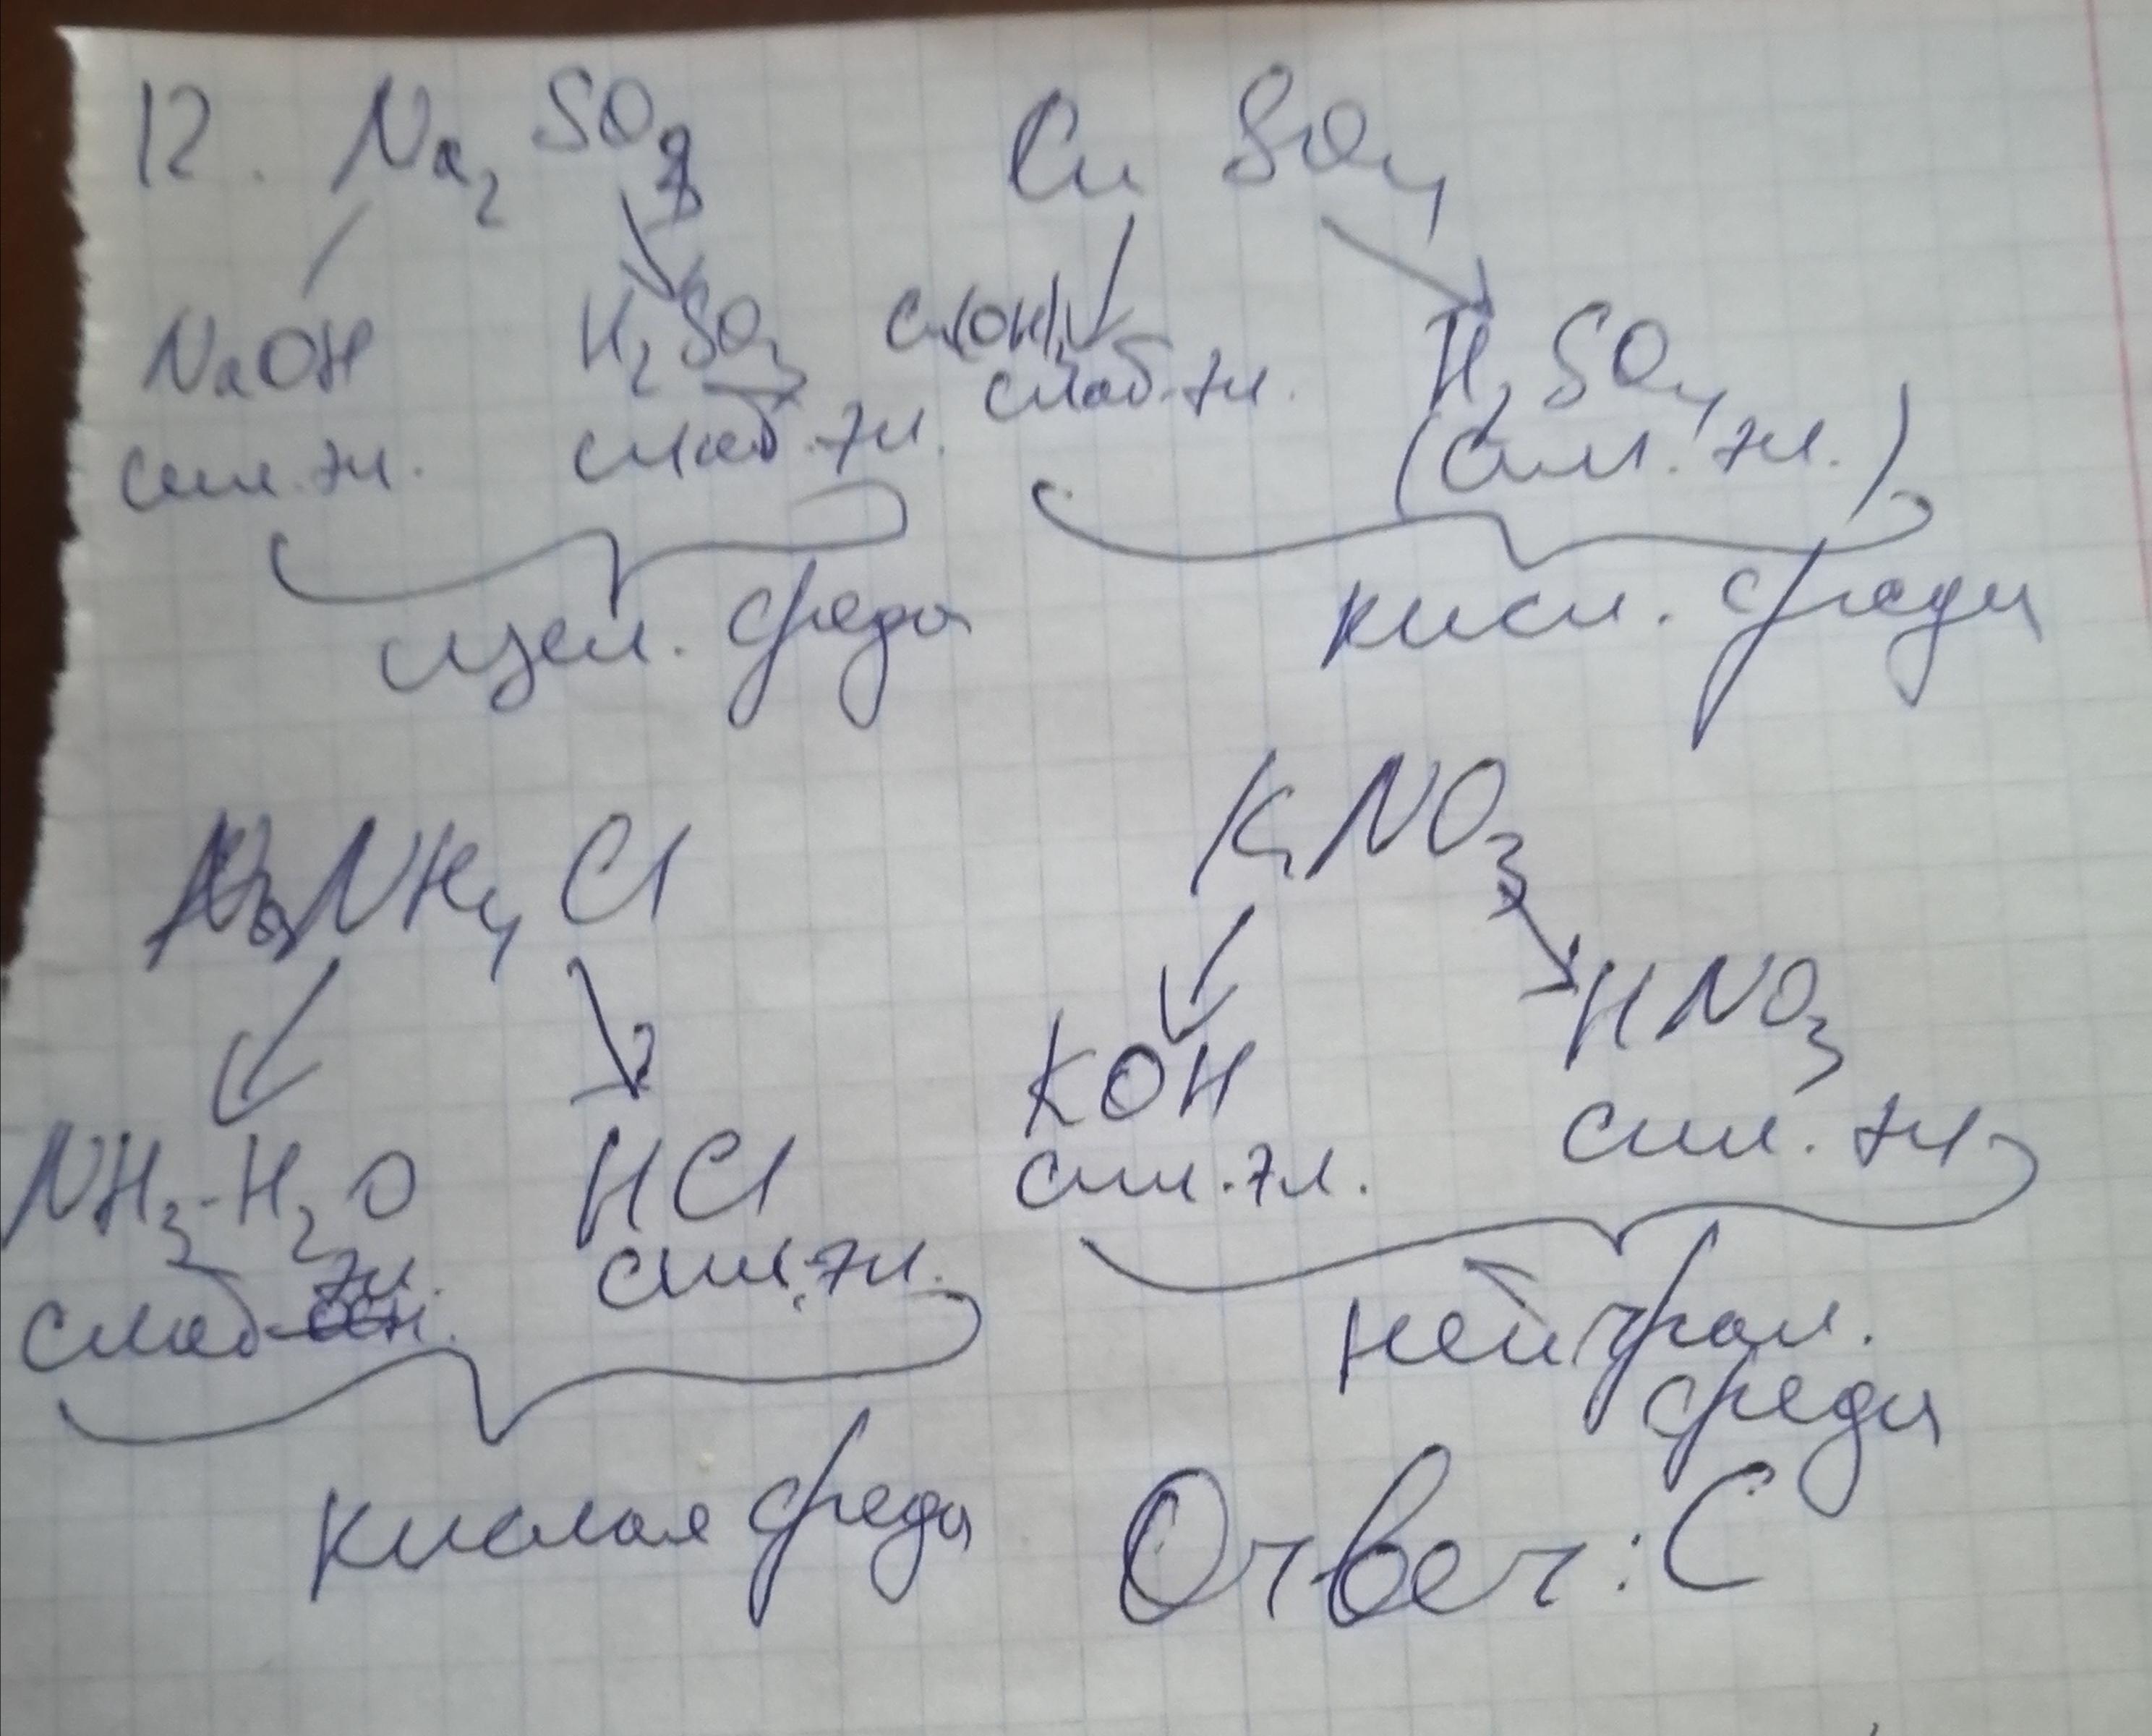 12. Na₂SO₃ CuSO₄
NaOH H₂SO₃ Cu(OH)₂ H₂SO₄
сил. эл. слаб. эл. слаб. эл. (сил. эл.)
щел. среда кисл. среда
NH₄Cl KNO₃
NH₃·H₂O HCl KOH HNO₃
слаб. эл. сил. эл. сил. эл. сил. эл.
кислая среда нейтрал. среда
Ответ: С